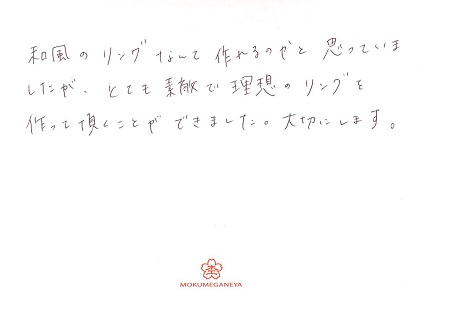 和風のリングなんて作れるのかと思っていま
したが、とても素敵で理想のリングを
作って頂くことができました。大切にします。
MOKUMEGANEYA